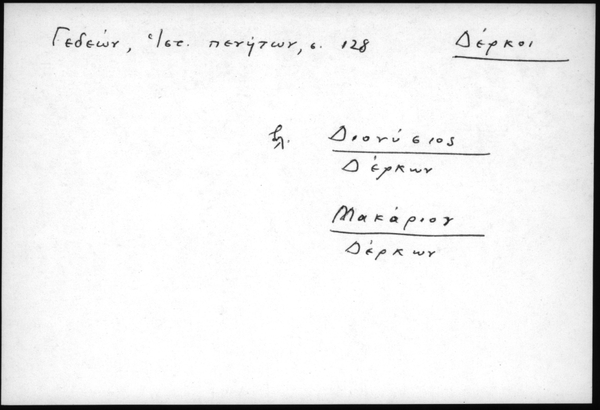 Γεδεών, Ἱστ. πενήτων, σ. 128 Δέρκοι
βλ. Διονύσιος
Δέρκων
Μακάριον
Δέρκων